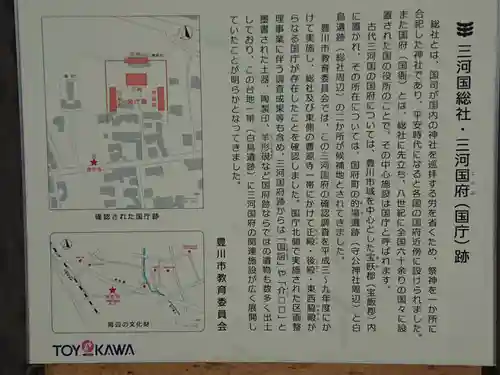 三河国総社・三河国府(国庁)跡
総社とは、国司が国内の神社を巡拝する労を省くため、祭神を一か所に
合祀した神社であり、平安時代になると各国の国府近傍に設けられました。
また国府(国衙)とは、総社に先立ち、八世紀に全国六十余りの国々に設
置された国の役所のことで、その中心施設は国庁と呼ばれます。
古代三河国の国府については、豊川市域を中心とした宝飫郡(宝飯郡)内
に置かれ、その所在については、国府町の的場遺跡(守公神社周辺)と白
鳥遺跡(総社周辺)の二か所が候補地とされてきました。
豊川市教育委員会では、この三河国府の確認調査を平成三~九年度にか
けて実施し、総社及び東側の曹源寺一帯にかけて正殿・後殿・東西脇殿か
らなる国庁が存在したことを確認しました。国庁北側で実施された区画整
理事業に伴う調査成果等も含め、三河国府跡からは「国厨」や「介□□」と
墨書された土器、陶製印、羊形硯など国府跡ならではの遺物も数多く出土
しており、この台地一帯(白鳥遺跡)に三河国府の関連施設が広く展開し
ていたことが明らかとなってきました。
豊川市教育委員会
確認された国庁跡
周辺の文化財
TOYOKAWA